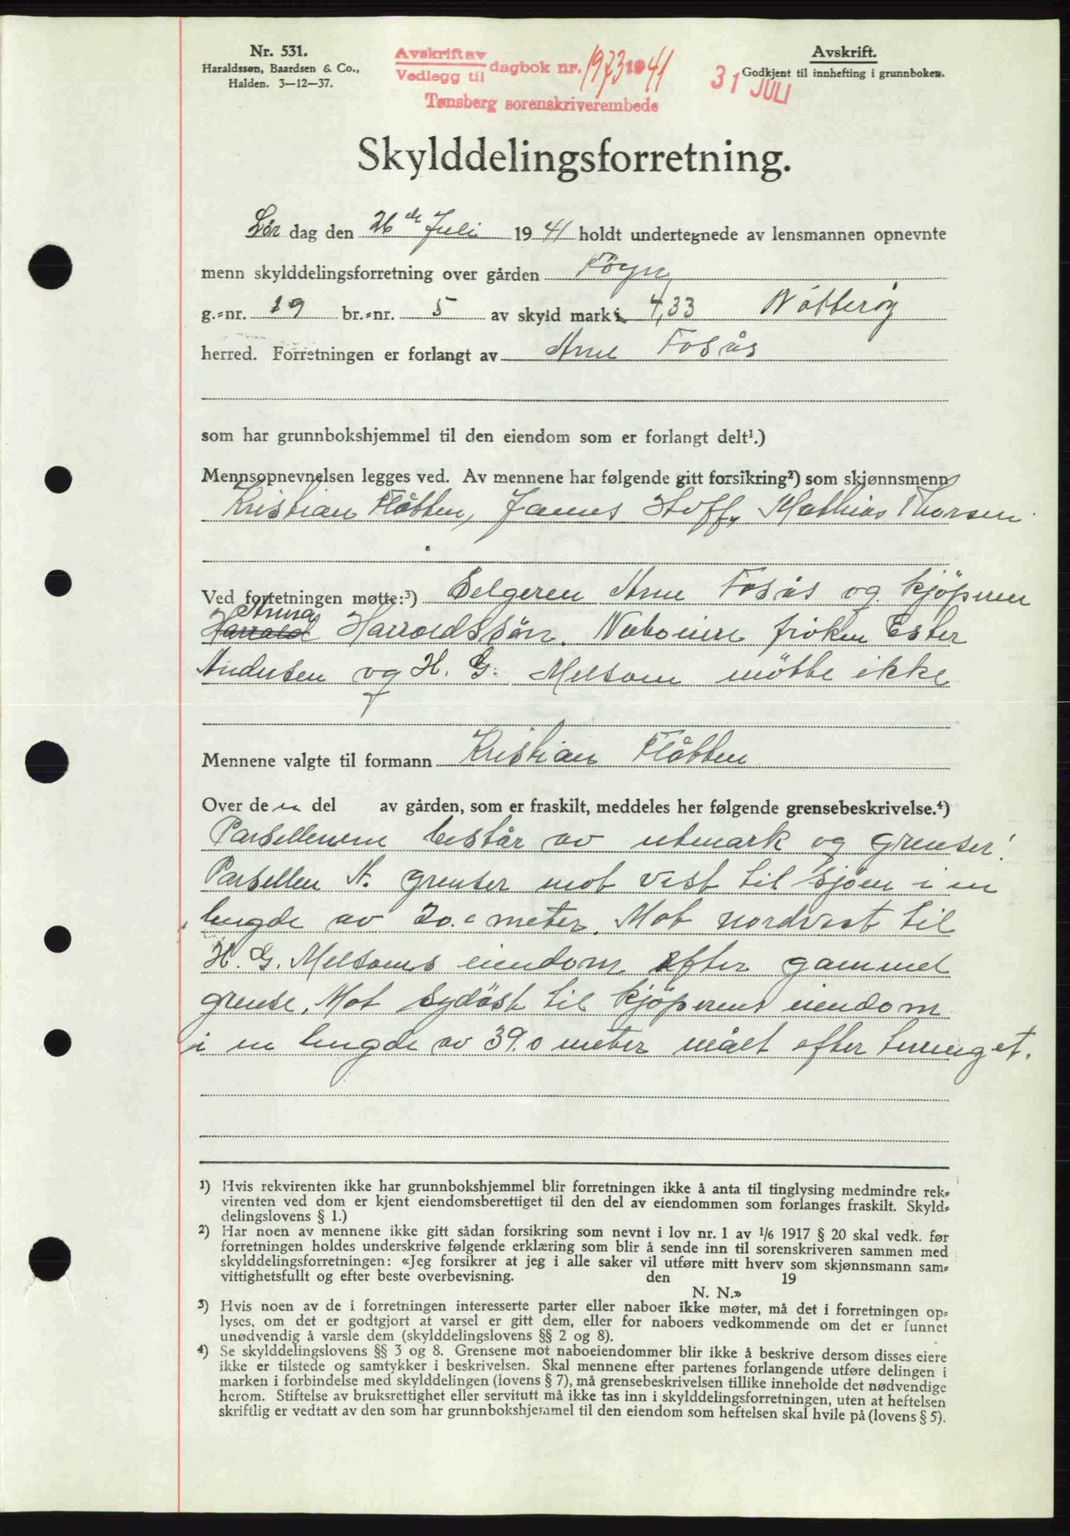 Nr. 531.
Haraldssen, Baardsen & Co.,
Halden. 3—12—37.
Avskrift av
Vedlegg til dagbok nr. 1973 1941
Tønsberg sorenskriverembede
31 JULI
Avskrift.
Godkjent til innhefting i grunnboken.
Skylddelingsforretning.
Lör dag den 26 de Juli 1941 holdt undertegnede av lensmannen opnevnte
menn skylddelingsforretning over gården Föyn
g.-nr. 19 br.-nr. 5 av skyld mark 4,33 Nötteröy
herred. Forretningen er forlangt av Arne Fosås
som har grunnbokshjemmel til den eiendom som er forlangt delt¹.)
Mennsopnevnelsen legges ved. Av mennene har følgende gitt forsikring²) som skjønnsmenn
Kristian Flåtten, Hoff, Mathias Thorsen
Ved forretningen møtte:³) Selgeren Arne Fosås og kjöperen
Harrald Anna Harraldssön. Naboeiere fröken Ester
Andersen og H. G. Melsom mötte ikke
Mennene valgte til formann Kristian Flåtten
Over den del av gården, som er fraskilt, meddeles her følgende grensebeskrivelse.⁴)
Parsellenene består av utmark og grenser:
Parsellen A. grenser mot vest til sjöen i en
lengde av 20.0 meter. Mot nordvest til
H. G. Melsoms eiendom efter gammel
grense. Mot sydöst til kjöperens eiendom
i en lengde av 39.0 meter målt efter terrenget.
¹) Hvis rekvirenten ikke har grunnbokshjemmel blir forretningen ikke å anta til tinglysing medmindre rek-
virenten ved dom er kjent eiendomsberettiget til den del av eiendommen som forlanges fraskilt. Skyld-
delingslovens § 1.)
²) Har noen av mennene ikke gitt sådan forsikring som nevnt i lov nr. 1 av 1/6 1917 § 20 skal vedk. før
forretningen holdes underskrive følgende erklæring som blir å sende inn til sorenskriveren sammen med
skylddelingsforretningen: «Jeg forsikrer at jeg i alle saker vil utføre mitt hverv som skjønnsmann sam-
vittighetsfullt og efter beste overbevisning. den 19
N. N.»
³) Hvis noen av de i forretningen interesserte parter eller naboer ikke møter, må det i forretningen op-
lyses, om det er godtgjort at varsel er gitt dem, eller for naboers vedkommende om det er funnet
unødvendig å varsle dem (skylddelingslovens §§ 2 og 8).
⁴) Se skylddelingslovens §§ 3 og 8. Grensene mot naboeiendommer blir ikke å beskrive dersom disses eiere
ikke er tilstede og samtykker i beskrivelsen. Skal mennene efter partenes forlangende utføre delingen i
marken i forbindelse med skylddelingen (lovens § 7), må grensebeskrivelsen tillike inneholde det nødvendige
herom. Stiftelse av bruksrettighet eller servitutt må ikke tas inn i skylddelingsforretningen, uten at heftelsen
skriftlig er vedtatt av den som har grunnbokshjemmel til den eiendom som heftelsen skal hvile på (lovens § 5).